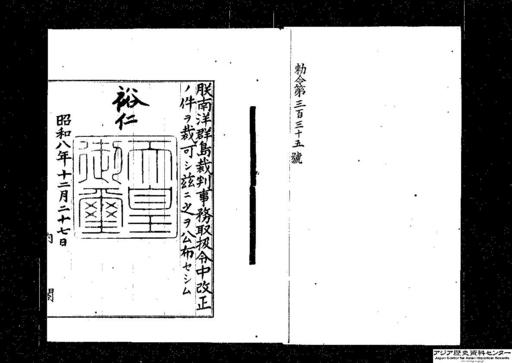 勅令第三百三十五號
朕南洋群島裁判事務取扱令中改正
ノ件ヲ裁可シ茲ニ之ヲ公布セシム
裕仁
天皇
御璽
昭和八年十二月二十七日
内閣
アジア歴史資料センター
Japan Center for Asian Historical Records